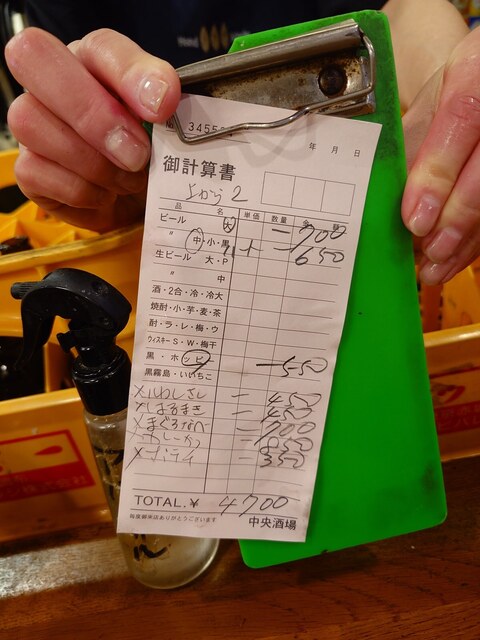 御計算書
年 月 日
上から2
品 名 単価 数量 金 額
ビール 大 一 700
〃 中・小・黒 一 650
生ビール 大・P
〃 中
酒・2合・冷・冷大
焼酎・小・芋・麦・茶
酎・ラ・レ・梅・ウ
ウィスキーS・W・梅干
黒・ホッピ 一 550
黒霧島・いいちこ
一 450
はるまき 一 450
まぐろなべ 一 700
一 850
一 350
TOTAL.¥ 4700
毎度御来店ありがとうございます 中央酒場